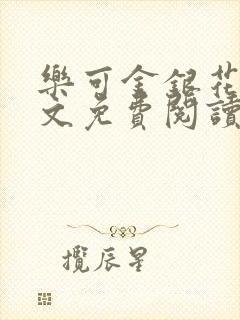 樂可金銀花
文免費閱讀
攬辰星